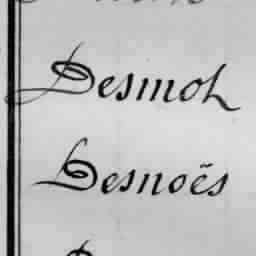 Desmol
Desnoës